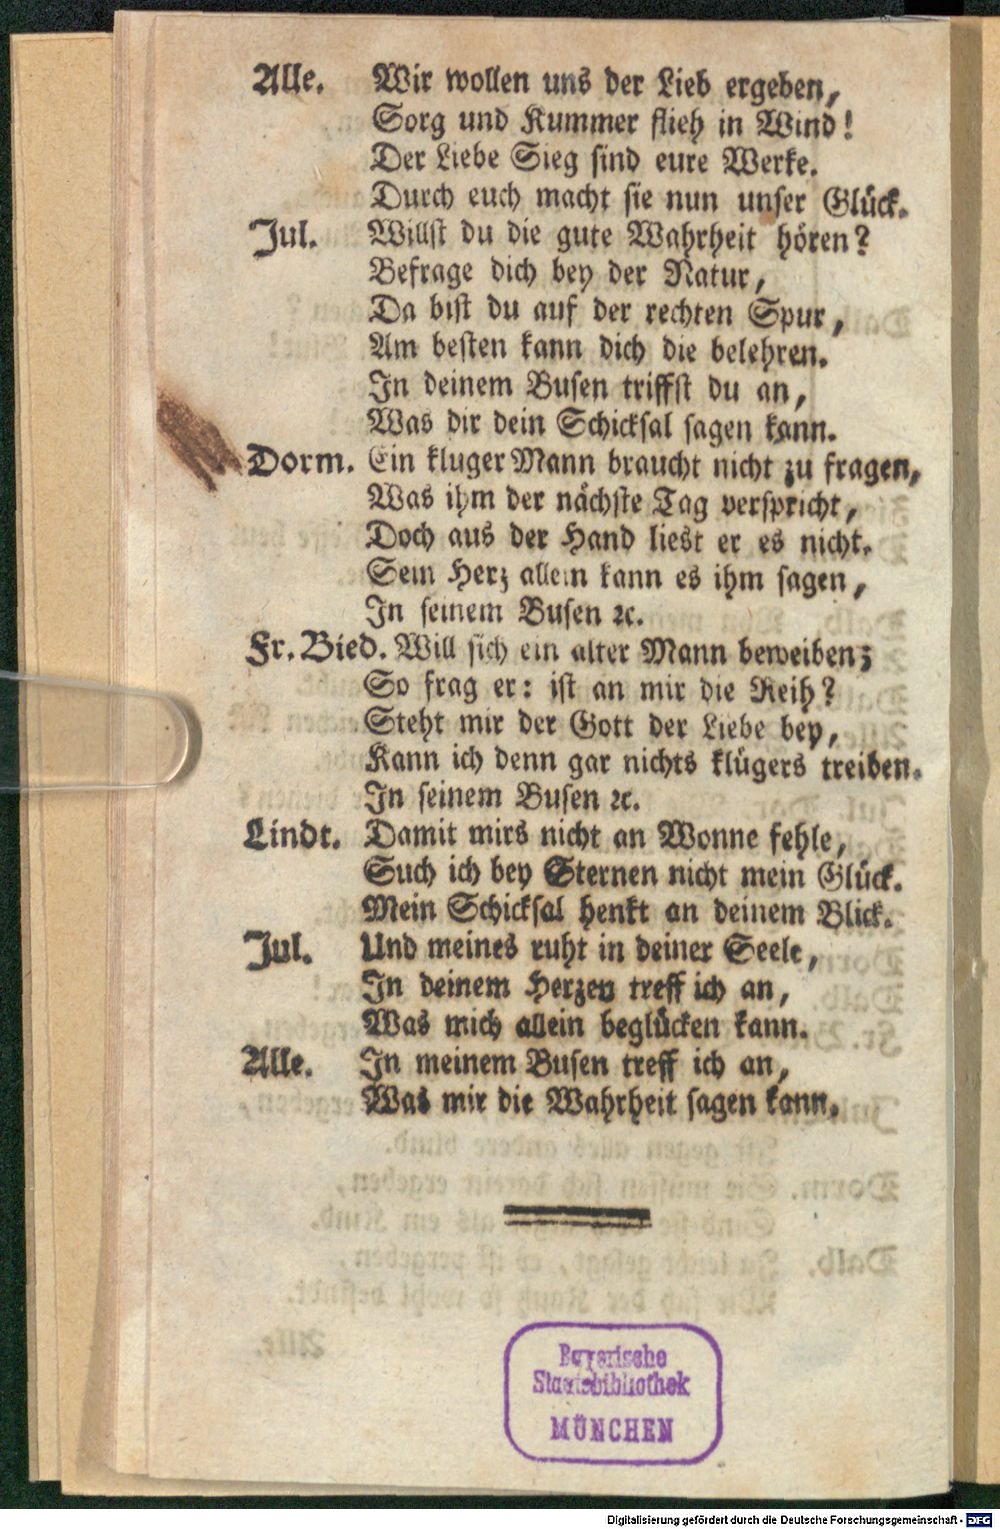 Alle. Wir wollen uns der Lieb ergeben,
Sorg und Kummer flieh in Wind!
Der Liebe Sieg sind eure Werke.
Durch euch macht sie nun unser Glück.
Jul. Willst du die gute Wahrheit hören?
Befrage dich bey der Natur,
Da bist du auf der rechten Spur,
Am besten kann dich die belehren.
In deinem Busen triffst du an,
Was dir dein Schicksal sagen kann.
Dorm. Ein kluger Mann braucht nicht zu fragen,
Was ihm der nächste Tag verspricht,
Doch aus der Hand liest er es nicht.
Sein Herz allein kann es ihm sagen,
In seinem Busen ꝛc.
Fr. Bied. Will sich ein alter Mann beweiben;
So frag er: ist an mir die Reih?
Steht mir der Gott der Liebe bey,
Kann ich denn gar nichts klügers treiben.
In seinem Busen ꝛc.
Lindt. Damit mirs nicht an Wonne fehle,
Such ich bey Sternen nicht mein Glück.
Mein Schicksal henkt an deinem Blick.
Jul. Und meines ruht in deiner Seele,
In deinem Herzen treff ich an,
Was mich allein beglücken kann.
Alle. In meinem Busen treff ich an,
Was mir die Wahrheit sagen kann.
Bayerische
Staatsbibliothek
MÜNCHEN
Digitalisierung gefördert durch die Deutsche Forschungsgemeinschaft - DFG